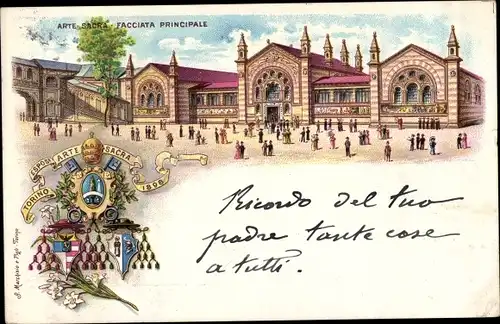 ARTE SACRA FACCIATA PRINCIPALE
ARTE SACRA
TORINO
1898
Ricordo del tuo
padre tante cose
a tutti.